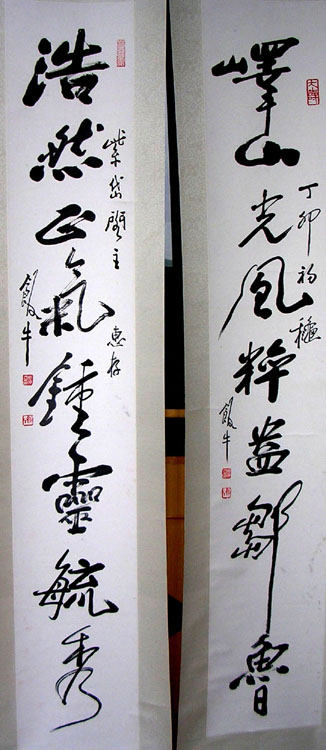 嶧山光風粹益鄒魯
丁卯初穐
飯牛
浩然正氣鍾靈毓秀
紫岱主
惠存
飯牛